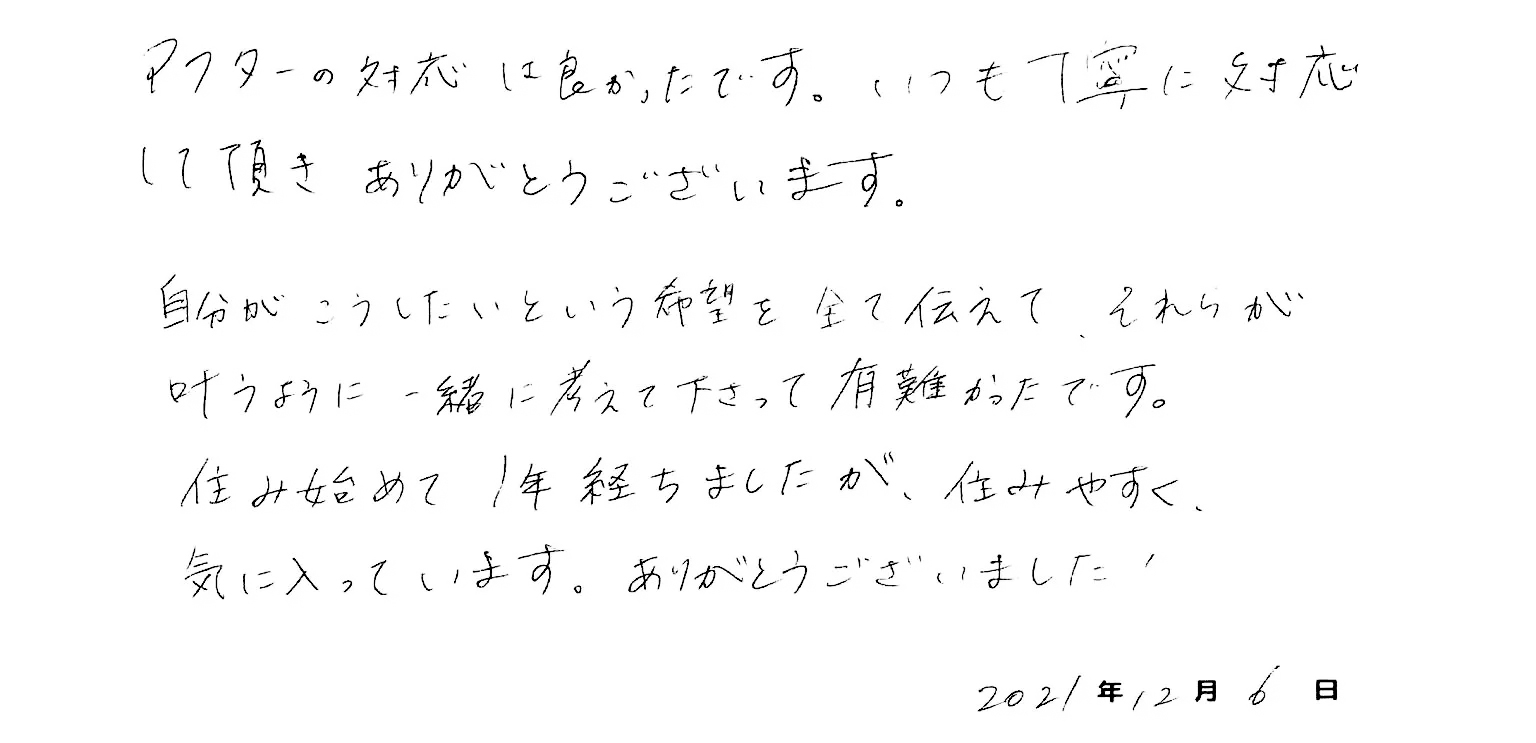 アフターの対応は良かったです。いつも丁寧に対応
して頂きありがとうございます。
自分がこうしたいという希望を全て伝えて、それらが
叶うように一緒に考えて下さって有難かったです。
住み始めて1年経ちましたが、住みやすく、
気に入っています。ありがとうございました!
2021年12月6日